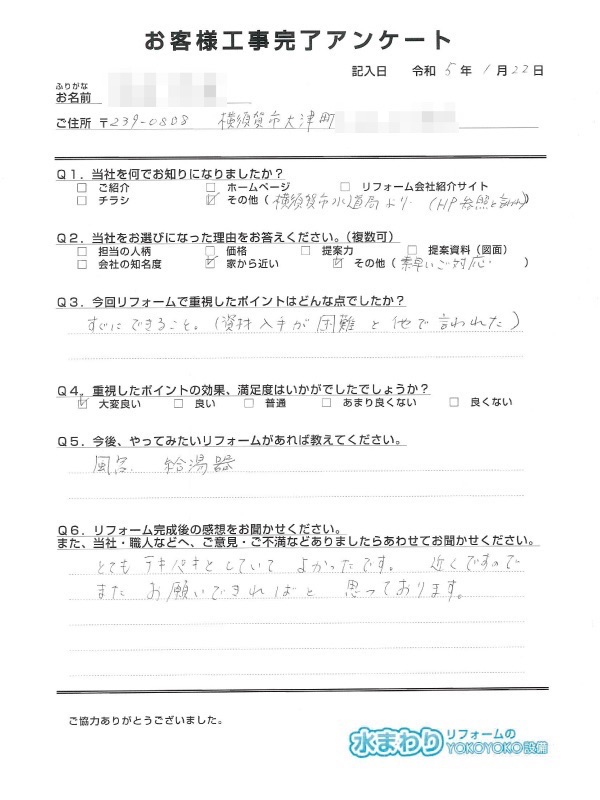 お客様工事完了アンケート
記入日 令和 5 年 1 月 22 日
ふりがな
お名前
ご住所 〒239-0808 横須賀市大津町
Q1. 当社を何でお知りになりましたか？
□ ご紹介 □ ホームページ □ リフォーム会社紹介サイト
□ チラシ ☑ その他（横須賀市水道局より (HP参照と言われ)）
Q2. 当社をお選びになった理由をお答えください。(複数可)
□ 担当の人柄 □ 価格 □ 提案力 □ 提案資料（図面）
□ 会社の知名度 ☑ 家から近い ☑ その他（素早いご対応）
Q3. 今回リフォームで重視したポイントはどんな点でしたか？
すぐにできること。(資材入手が困難と他で言われた)
Q4. 重視したポイントの効果、満足度はいかがでしたでしょうか？
☑ 大変良い □ 良い □ 普通 □ あまり良くない □ 良くない
Q5. 今後、やってみたいリフォームがあれば教えてください。
風呂. 給湯器
Q6. リフォーム完成後の感想をお聞かせください。
また、当社・職人などへ、ご意見・ご不満などありましたらあわせてお聞かせください。
とてもテキパキとしていてよかったです。 近くですので
またお願いできればと思っております。
ご協力ありがとうございました。
水まわりリフォームの
YOKOYOKO設備